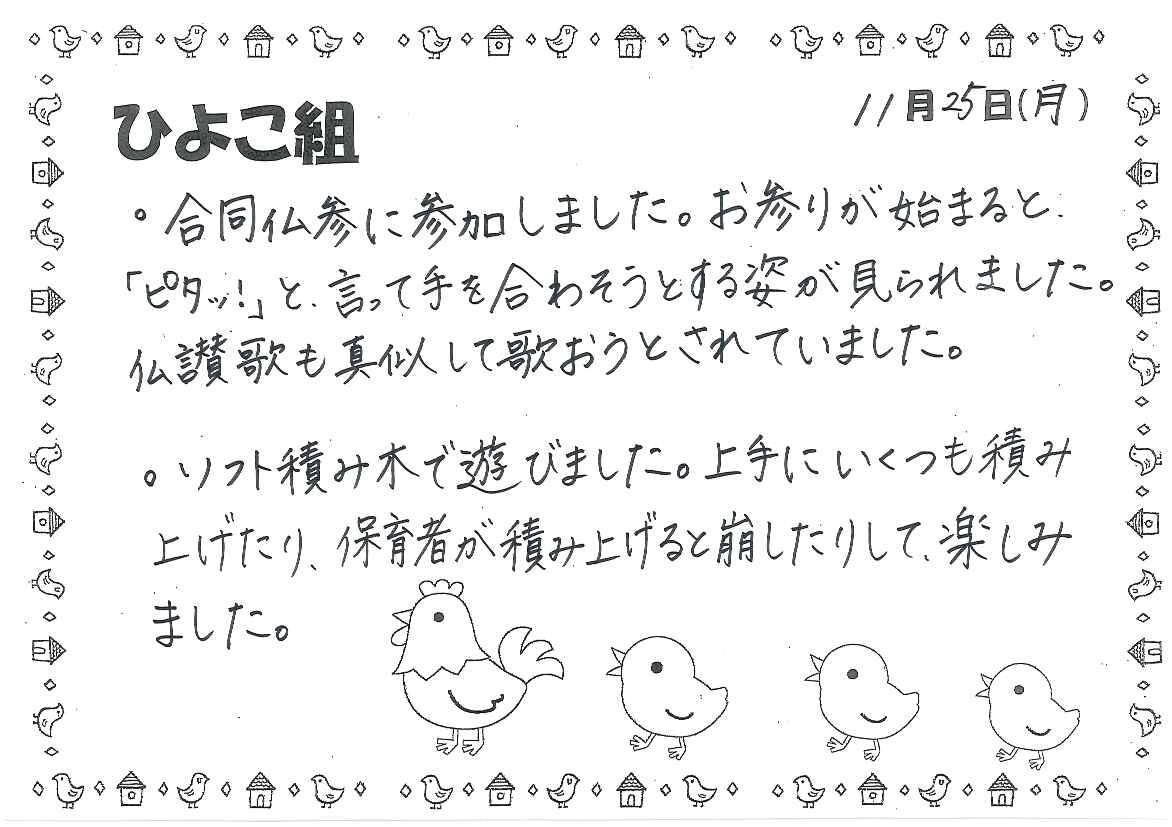 ひよこ組
11月25日(月)
。合同仏参に参加しました。お参りが始まると、
「ピタッ!」と、言って手を合わそうとする姿が見られました。
仏讃歌も真似して歌おうとされていました。
。ソフト積み木で遊びました。上手にいくつも積み
上げたり、保育者が積み上げると崩したりして、楽しみ
ました。